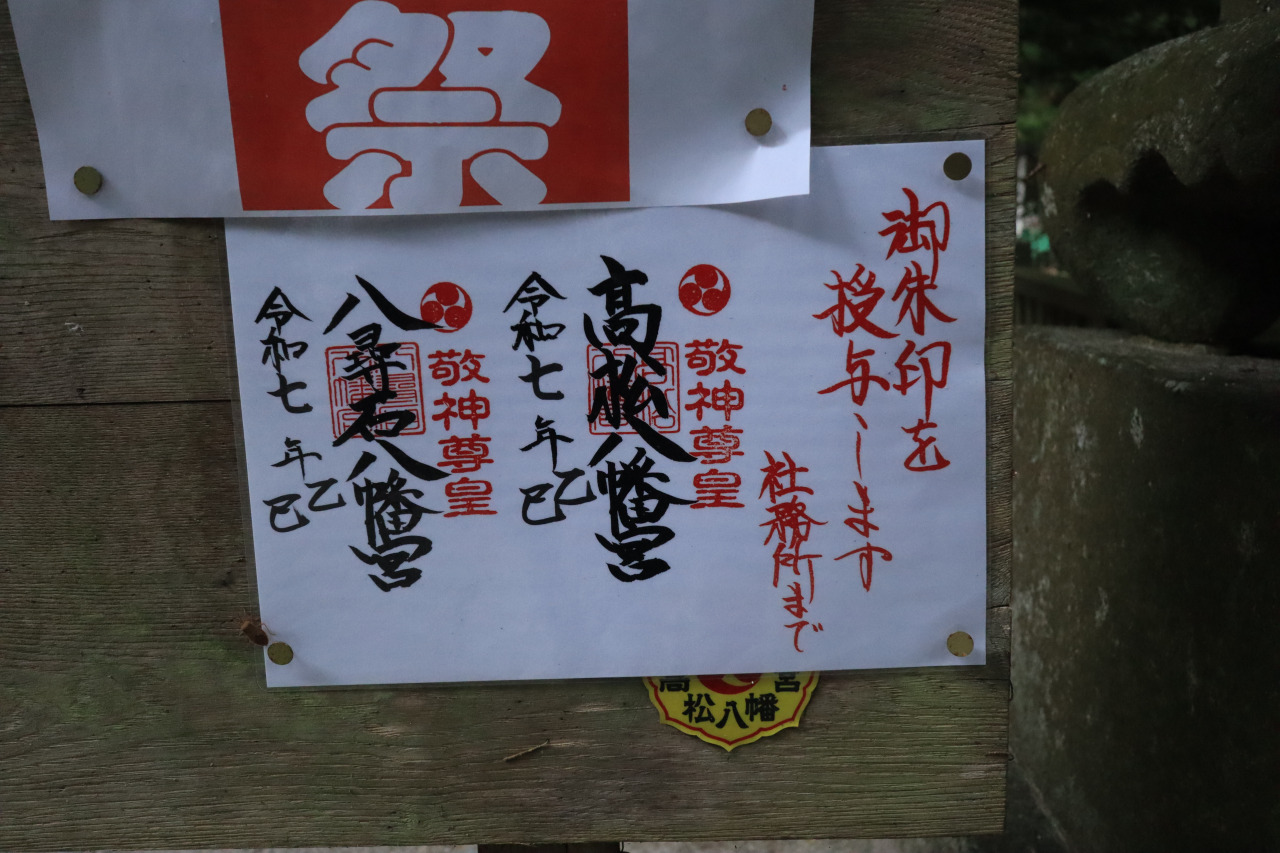 祭
御朱印を
授与します
社務所まで
敬神尊皇
高松八幡宮
令和七年乙巳
敬神尊皇
八尋石八幡宮
令和七年乙巳
高松八幡宮